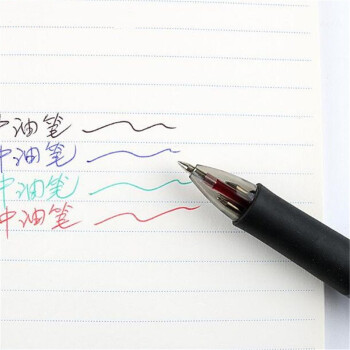 中油笔
中油笔
中油笔
中油笔